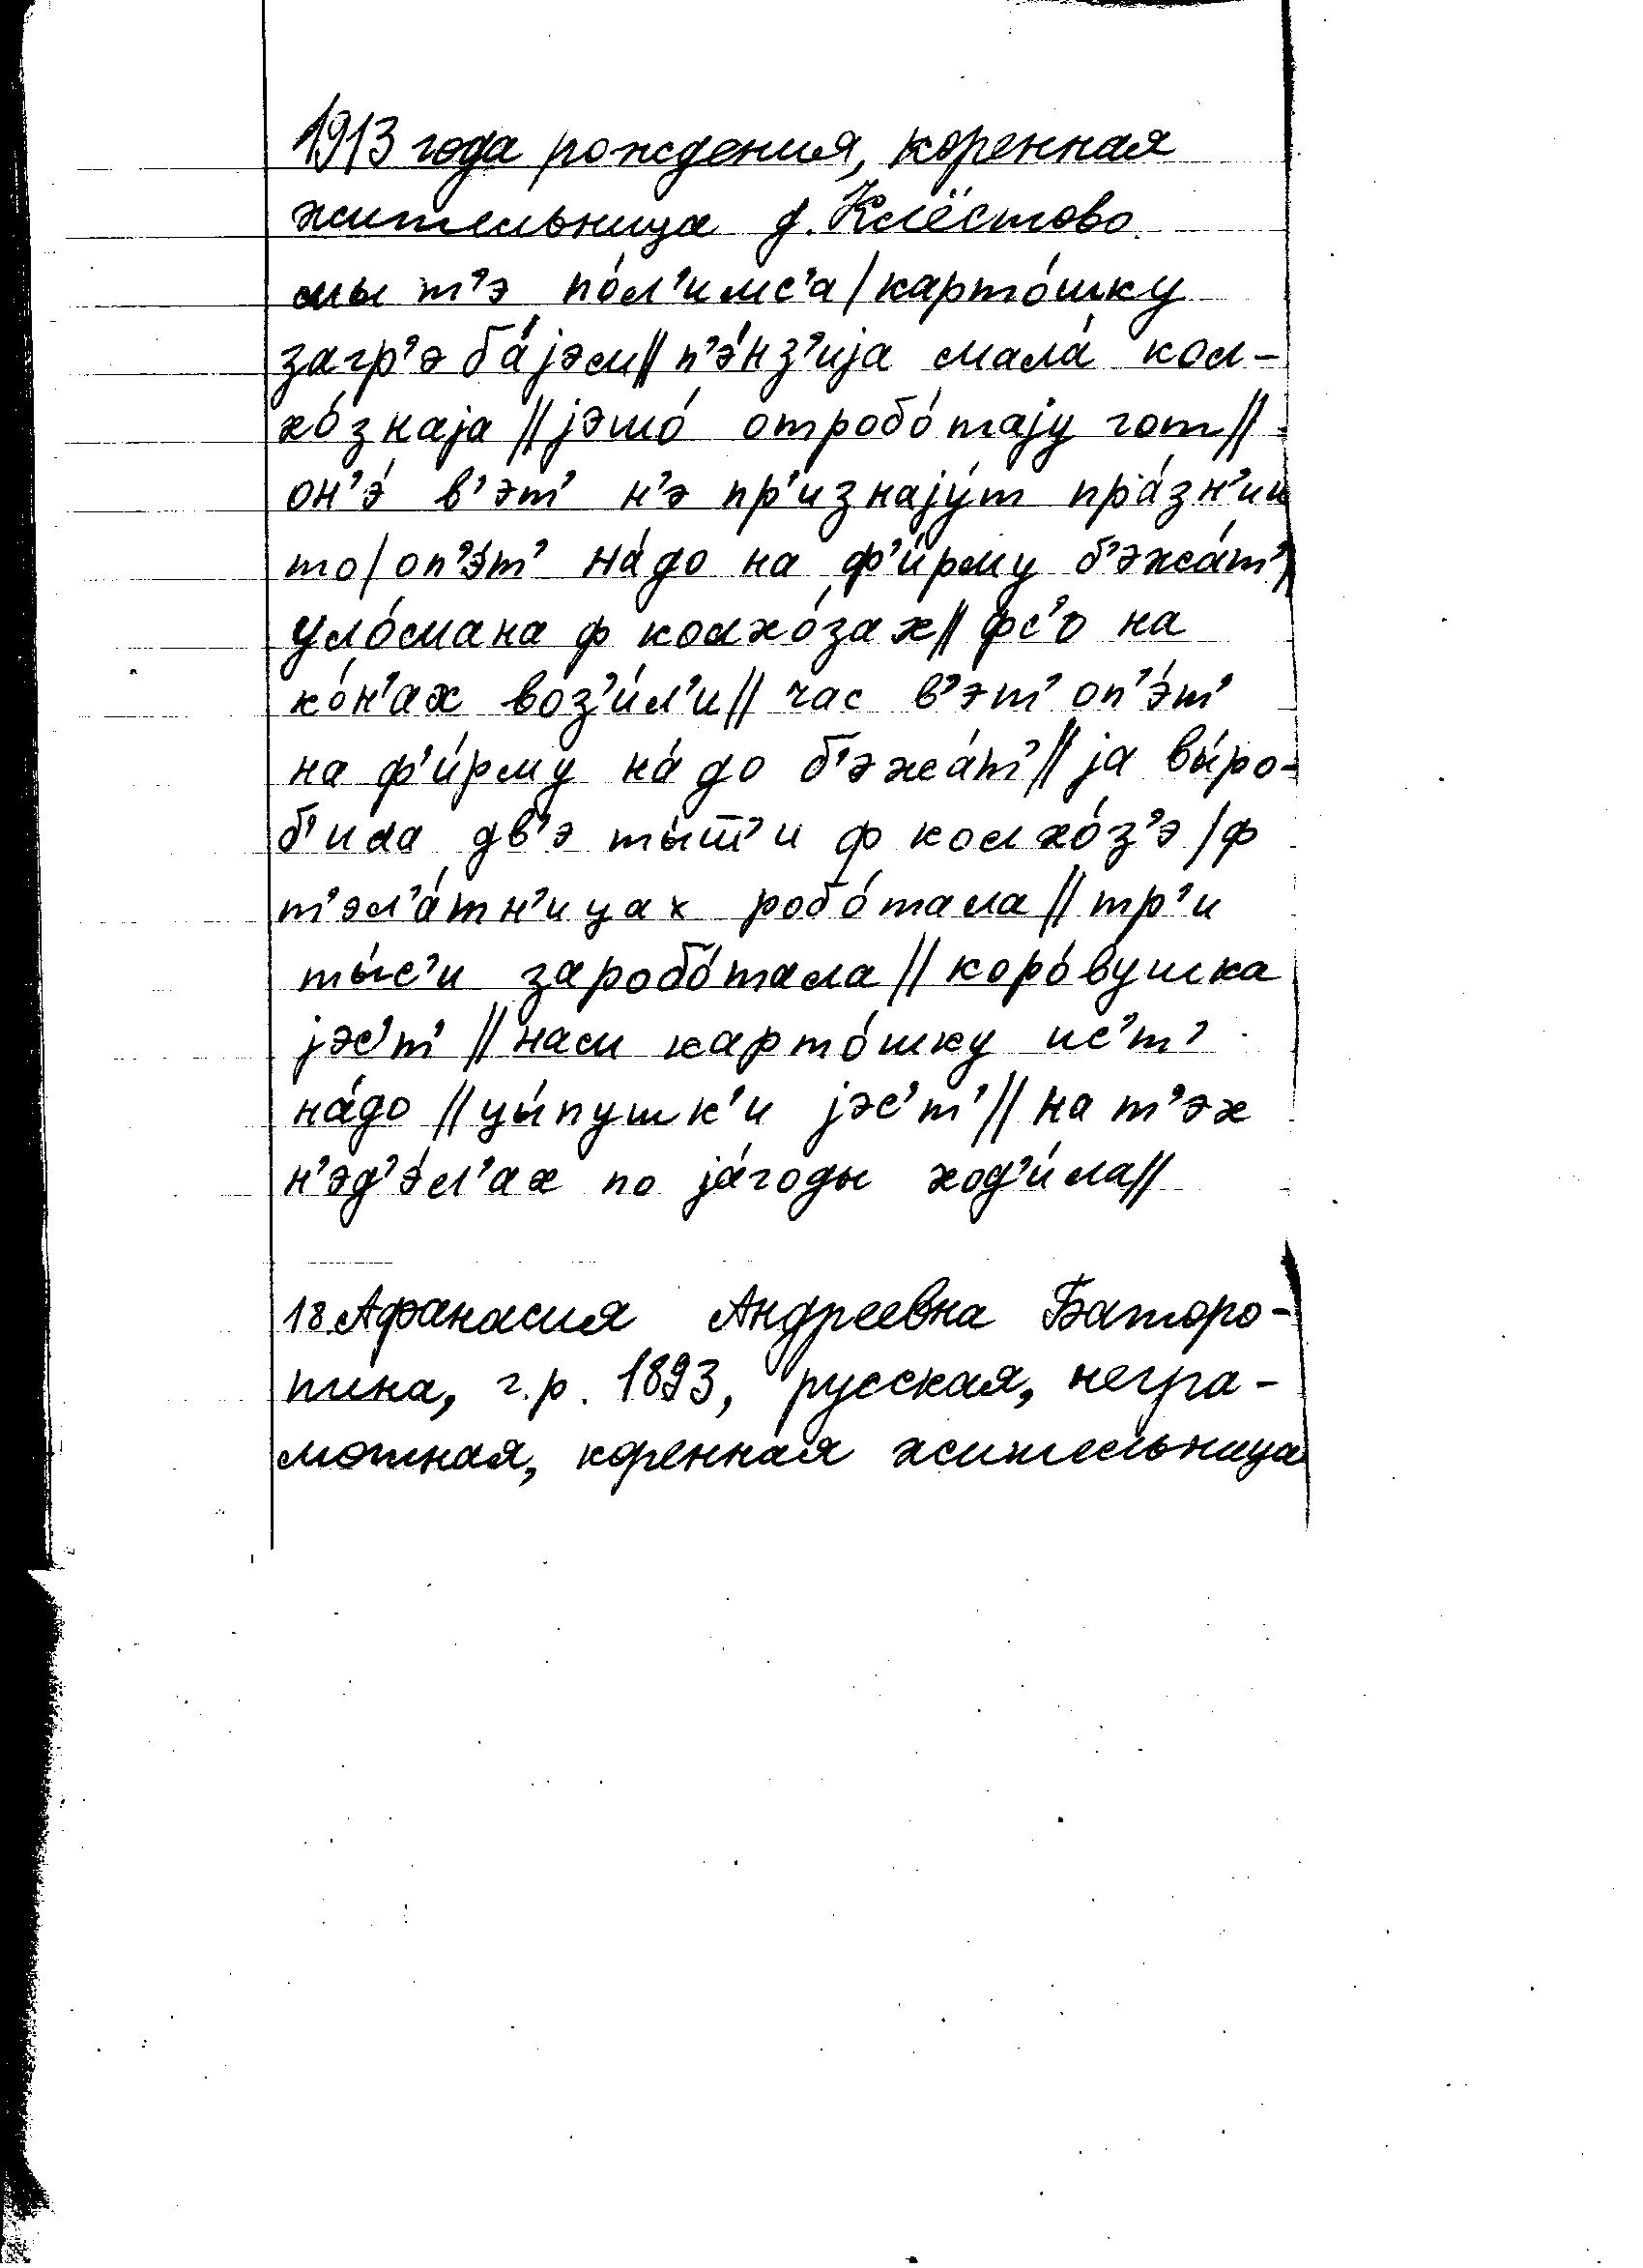 1913 года рождения, коренная
жительница д. Клёстово.
мы т’э по́л’имс’а / карто́шку
загр’э ба́jэм // п’э́нз’иjа мала́ кол-
хо́знаjа // jэшо́ отробо́таjу гот //
он’э́ в’эт’ н’э пр’изнаjу́т пра́зн’ик
то / оп’э́т’ на́до на ф’и́рму б’эжа́т’ /
уло́мана ф колхо́зах // фс’о на
ко́н’ах воз’и́л’и // час в’эт’ оп’э́т’
на ф’и́рму на́до б’эжа́т’ // jа вы́ро-
б’ила дв’э ты́т’и ф колхо́з’э / ф
т’эл’а́тн’ицах робо́тала // тр’и
ты́с’и заробо́тала // коро́вушка
jэс’т’ // нам карто́шку ис’т’
на́до // цы́пушк’и jэс’т’ // на т’эх
н’эд’э́л’ах по jа́годы ход’и́ла //
18 Афанасия Андреевна Баторо-
пина, г.р. 1893, русская, негра-
мотная, коренная жительница